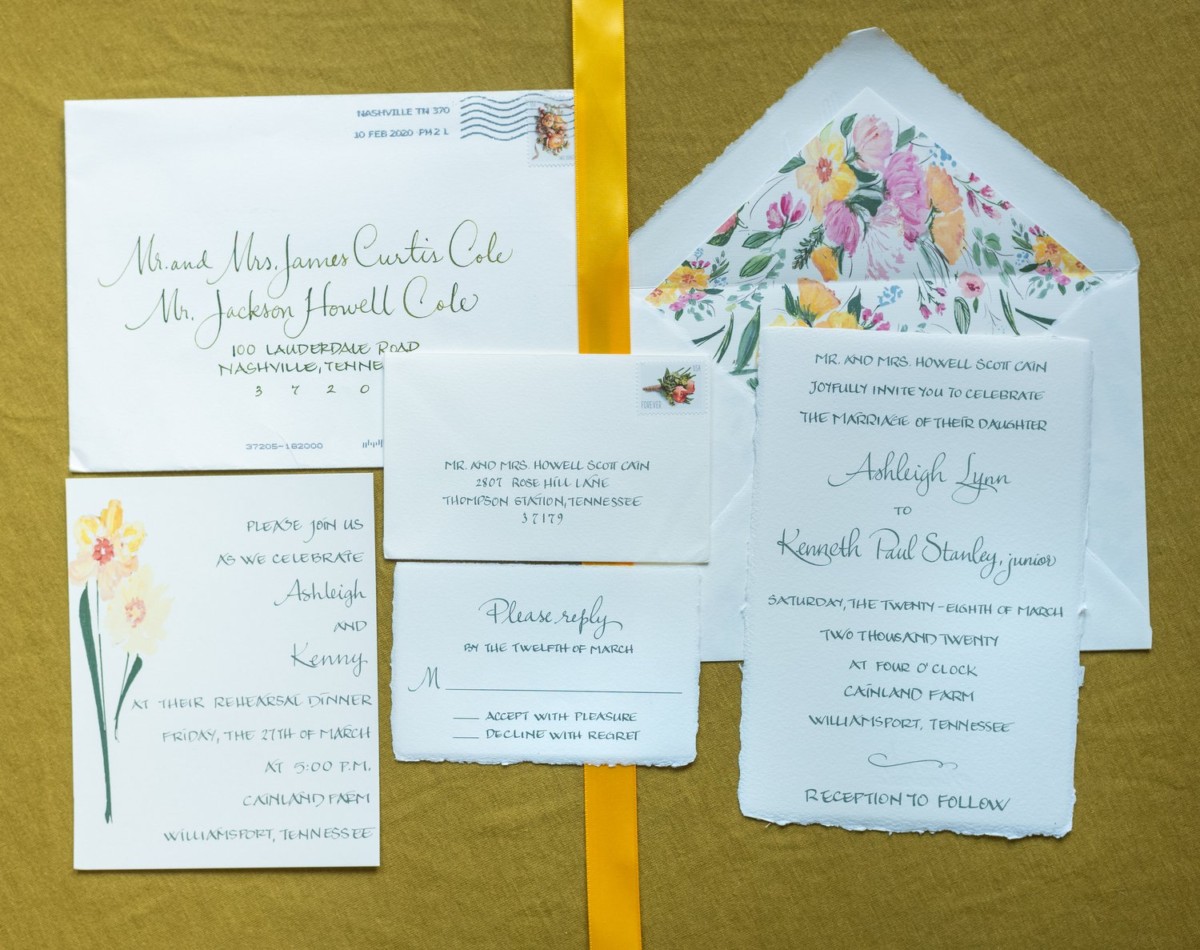 NASHVILLE TN 370
10 FEB 2020 PM 2 L
Mr. and Mrs. James Curtis Cole
Mr. Jackson Howell Cole
100 LAUDERDALE ROAD
NASHVILLE, TENNE
3 7 2 0
37205-162000
FOREVER
MR. AND MRS. HOWELL SCOTT CAIN
2807 ROSE HILL LANE
THOMPSON STATION, TENNESSEE
37179
PLEASE JOIN US
AS WE CELEBRATE
Ashleigh
AND
Kenny
AT THEIR REHEARSAL DINNER
FRIDAY, THE 27TH OF MARCH
AT 5:00 P.M.
CAINLAND FARM
WILLIAMSPORT, TENNESSEE
Please reply
BY THE TWELFTH OF MARCH
M
ACCEPT WITH PLEASURE
DECLINE WITH REGRET
MR. AND MRS. HOWELL SCOTT CAIN
JOYFULLY INVITE YOU TO CELEBRATE
THE MARRIAGE OF THEIR DAUGHTER
Ashleigh Lynn
TO
Kenneth Paul Stanley, junior
SATURDAY, THE TWENTY-EIGHTH OF MARCH
TWO THOUSAND TWENTY
AT FOUR O'CLOCK
CAINLAND FARM
WILLIAMSPORT, TENNESSEE
RECEPTION TO FOLLOW